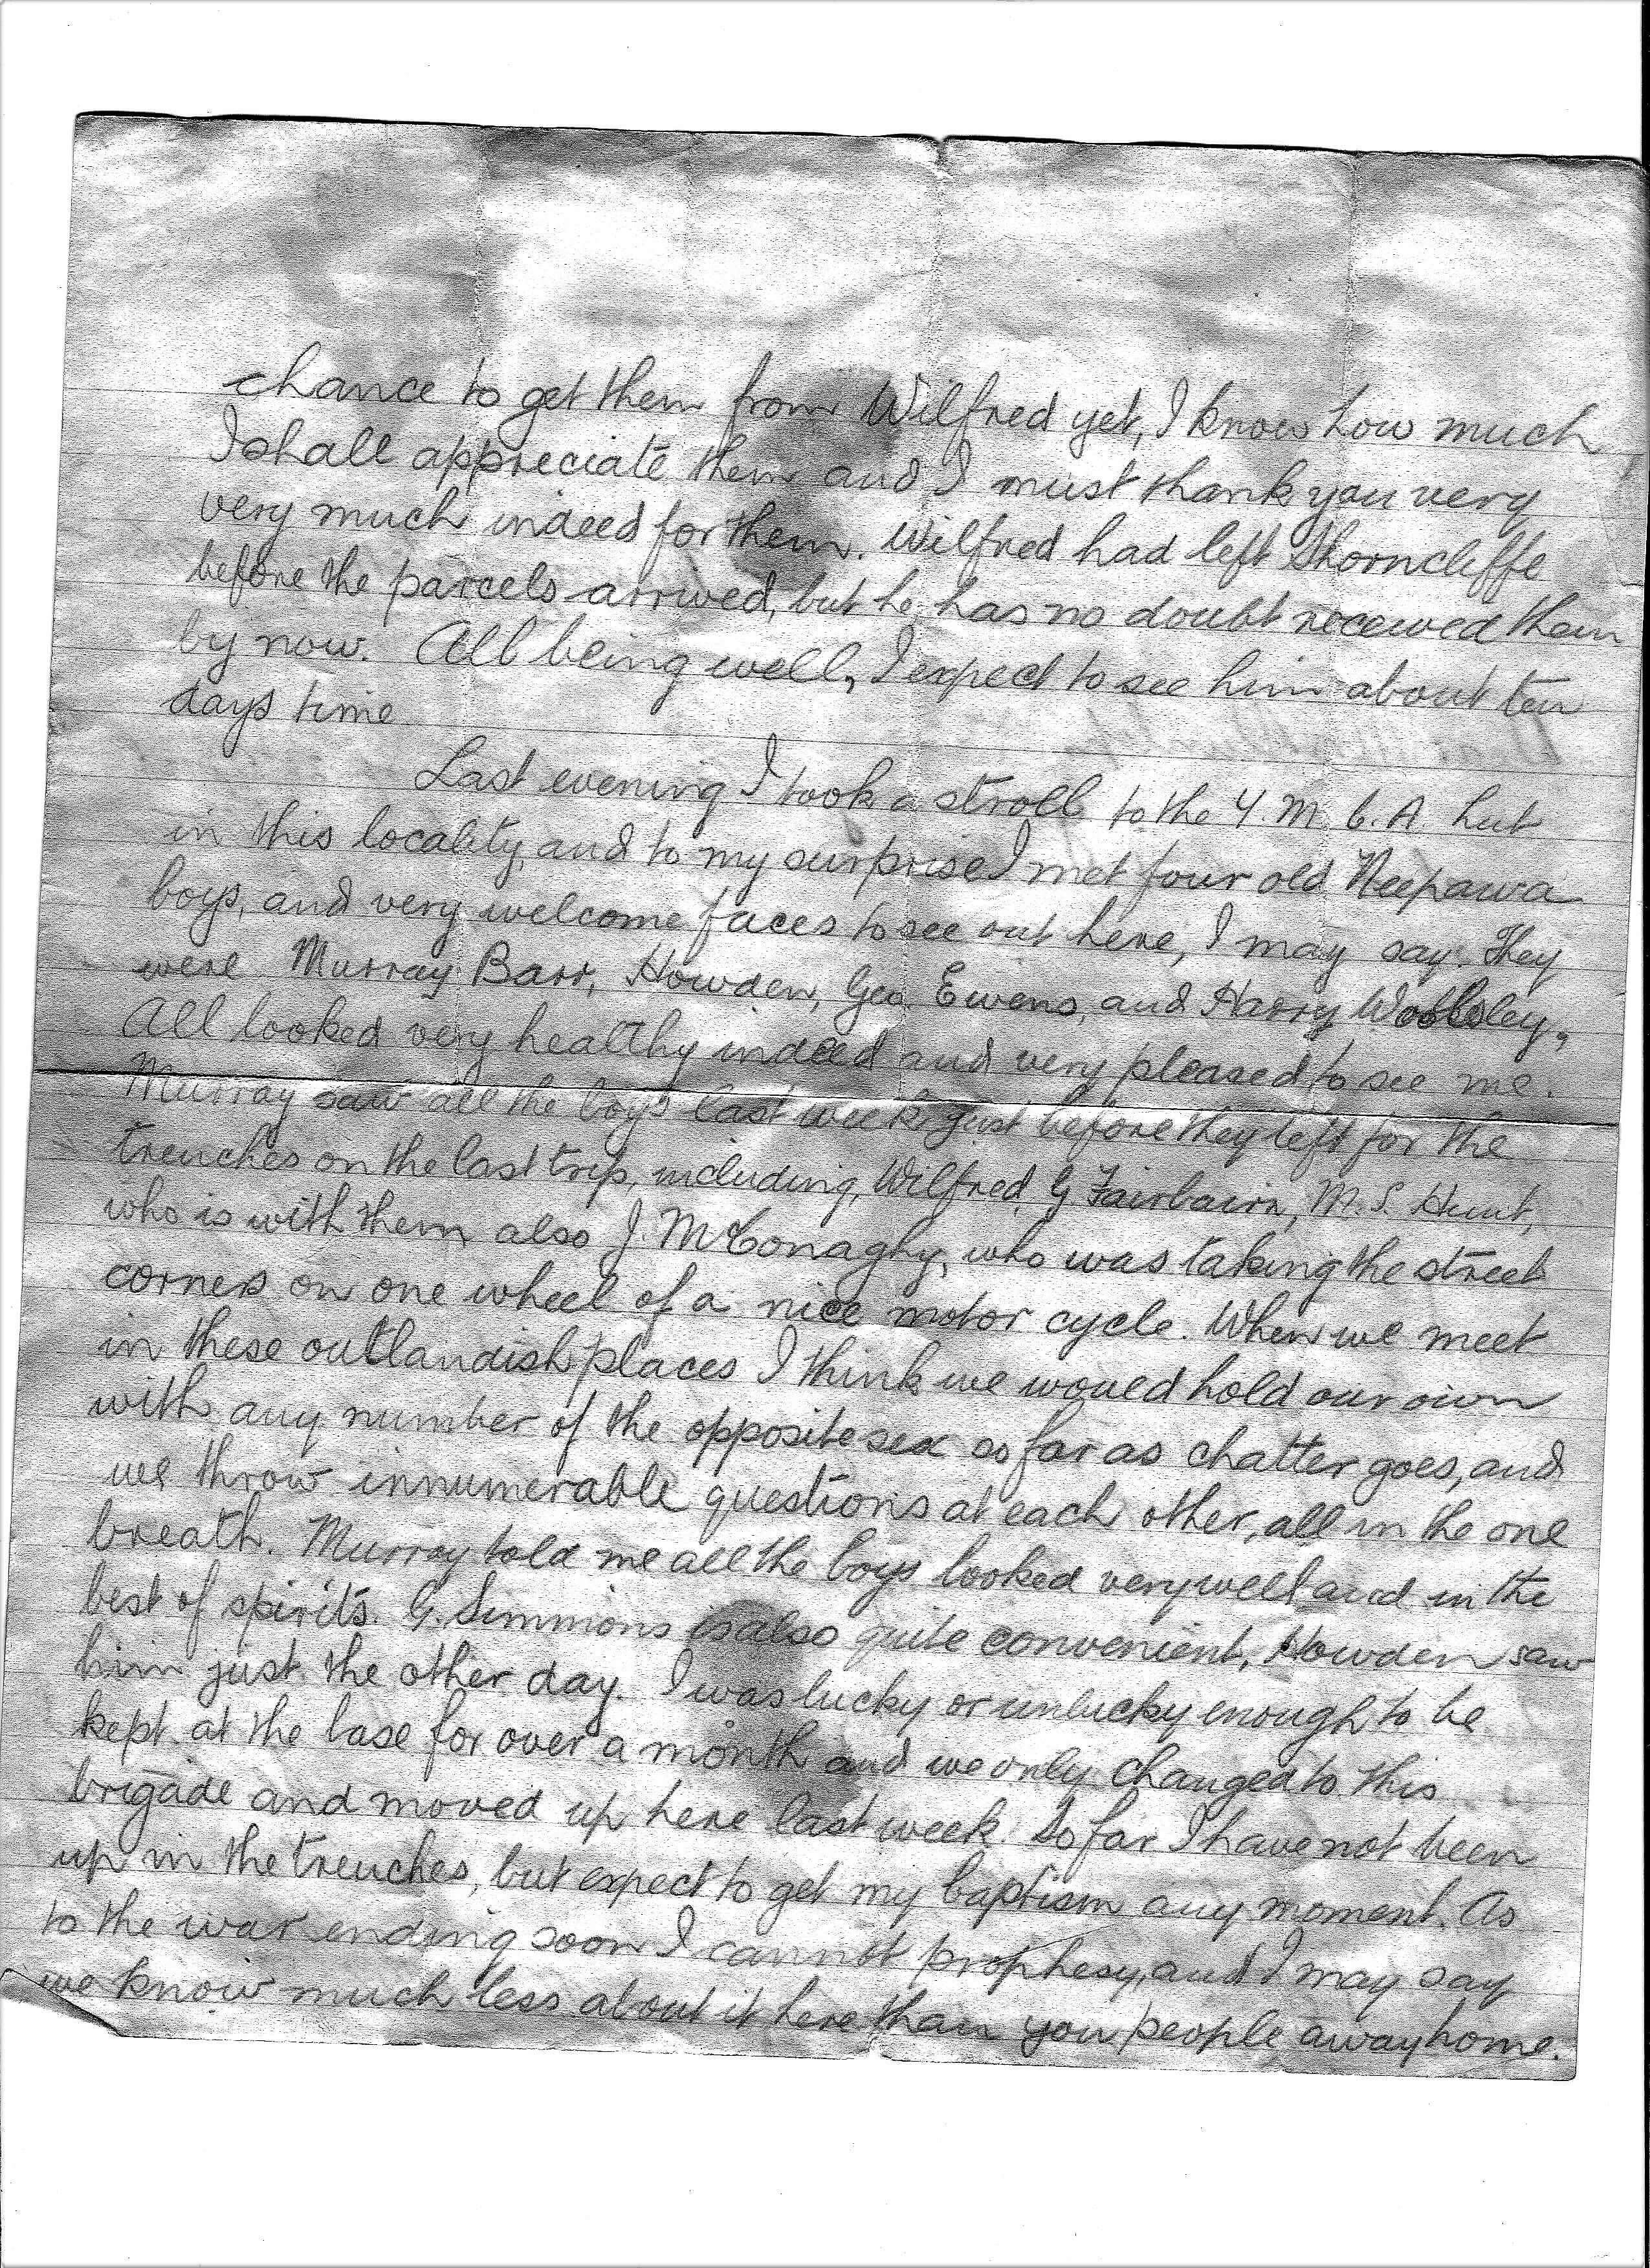 chance to get them from Wilfred yet, I know how much
I shall appreciate them and I must thank you very
very much indeed for them. Wilfred had left Shorncliffe
before the parcels arrived, but he has no doubt received them
by now. All being well, I expect to see him about ten
days time
Last evening I took a stroll to the Y.M.C.A. hut
in this locality, and to my surprise I met four old Neepawa
boys, and very welcome faces to see out here, I may say. They
were Murray Barr, Howden, Geo Ewens, and Harry Woolsley,
All looked very healthy indeed and very pleased to see me.
Murray saw all the boys last week just before they left for the
trenches on the last trip, including, Wilfred, G Fairbairn, M.S. Hunt,
who is with them also J. McConaghy, who was taking the street
corners on one wheel of a nice motor cycle. When we meet
in these outlandish places I think we would hold our own
with any number of the opposite sex so far as chatter goes, and
we throw innumerable questions at each other, all in the one
breath. Murray told me all the boys looked very well and in the
best of spirits. G. Simmons is also quite convenient, Howden saw
him just the other day. I was lucky or unlucky enough to be
kept at the base for over a month and we only changed to this
brigade and moved up here last week. So far I have not been
up in the trenches, but expect to get my baptism any moment. As
to the war ending soon I cannot prophesy, and I may say
we know much less about it here than you people away home.